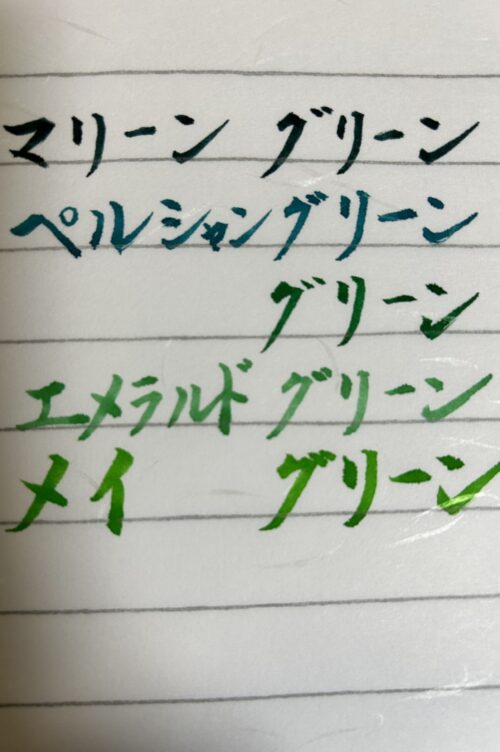 マリーン グリーン
ペルシャングリーン
グリーン
エメラルド グリーン
メイ グリーン